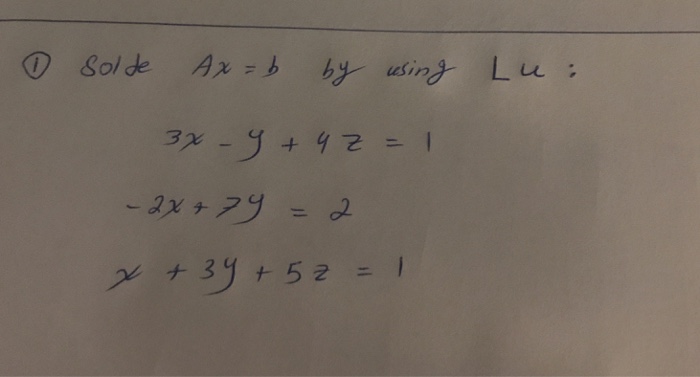 ① Solde Ax = b by using Lu :
3x - y + 4z = 1
-2x + 7y = 2
x + 3y + 5z = 1